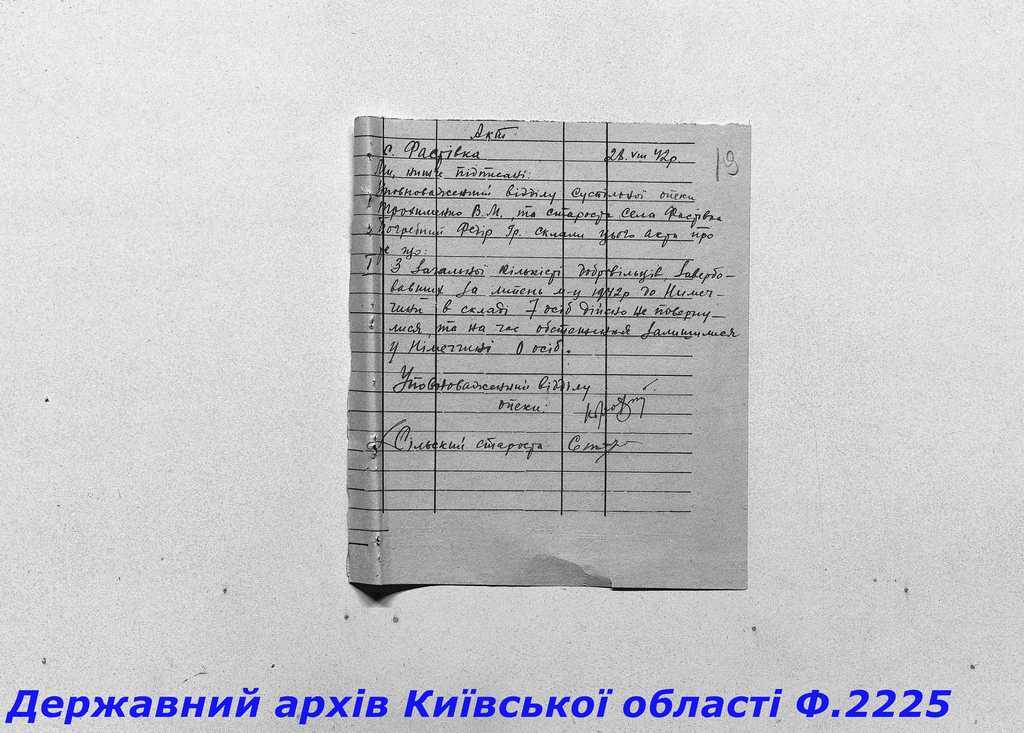 Акт
с. Фастівка 28. VIII 42р.
19
Ми, нижче підписані:
Уповноважений відділу суспільної опеки
В.М. та староста села Фастівка
Федір Гр. склали цього акта про
те що:
З загальної кількісті добровільців завербо-
вавших за липень м-ц 1942р до Німеч-
чини в складі 7 осіб дійсно не поверну-
лися, та на час обстеження залишилися
у Німеччині 0 осіб.
Уповноважений відділу
опеки:
Сільский староста
Державний архів Київської області Ф.2225